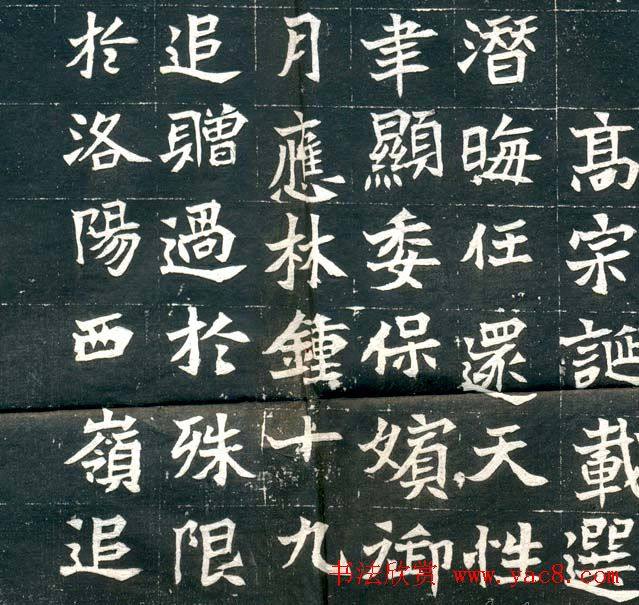 高宗誕載選
潛晦任還天性
聿顯委保嬪御
月應林鍾十九
追贈過於殊限
於洛陽西嶺追
书法欣赏 www.yac8.com